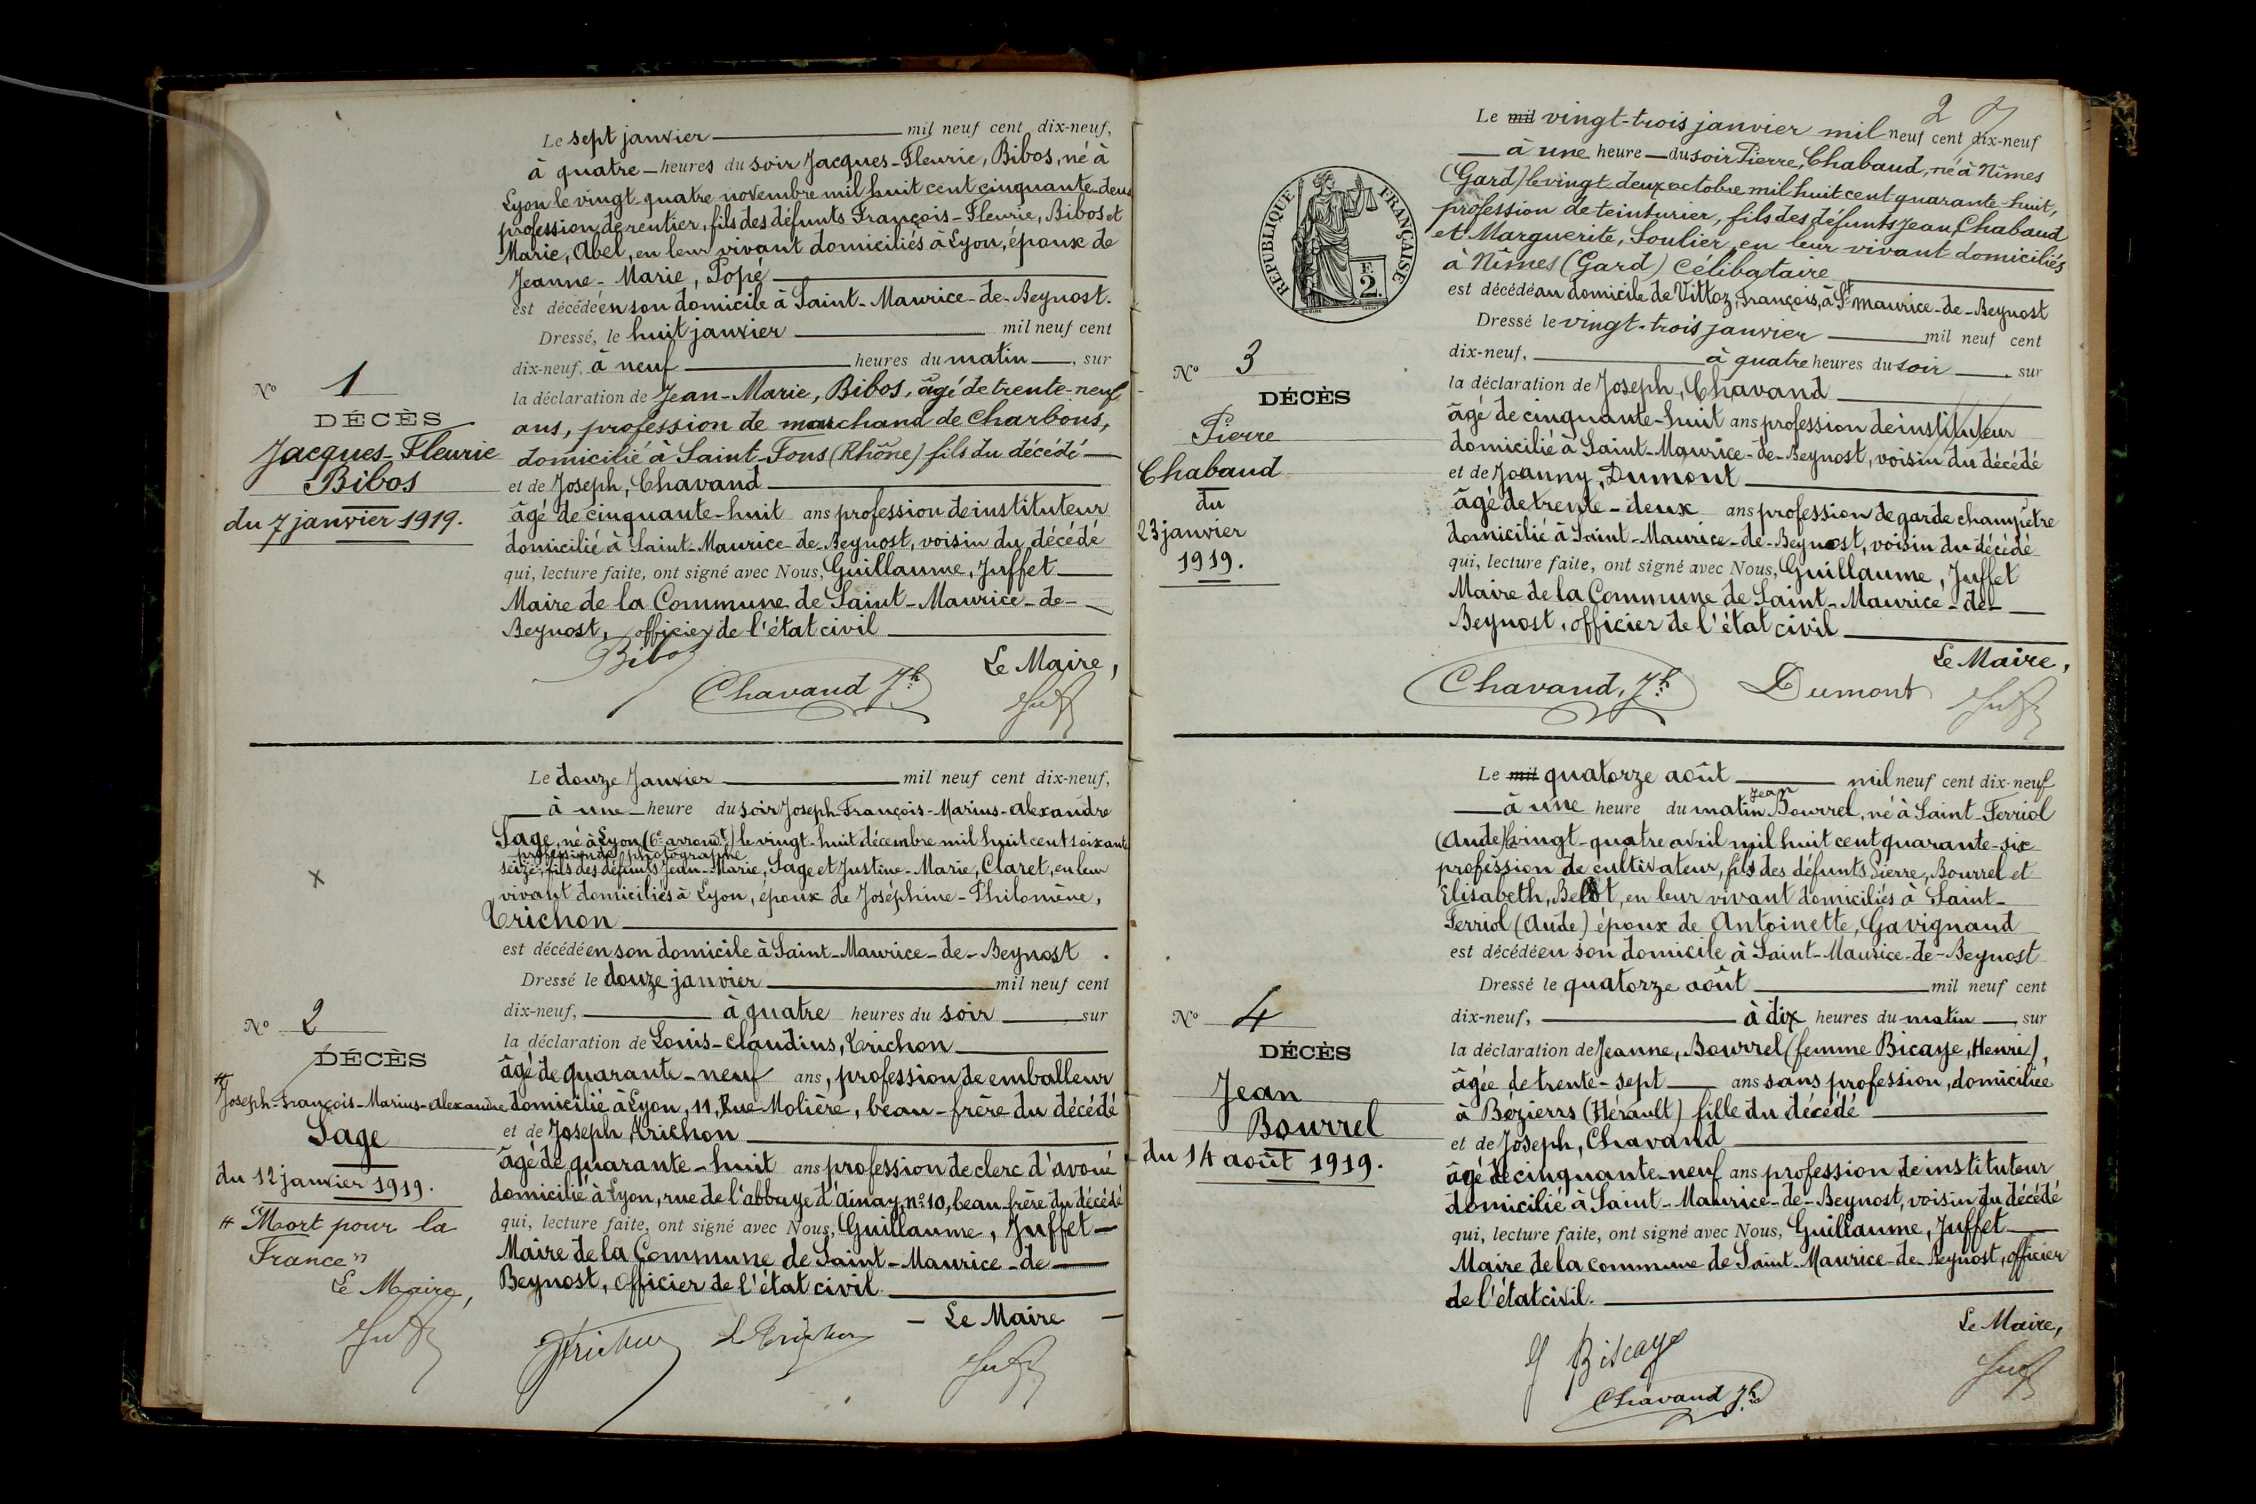 Le sept janvier mil neuf cent dix-neuf,
à quatre heures du soir Jacques-Fleurie, Bibos, né à
Lyon le vingt-quatre novembre mil huit cent cinquante-deux
profession de rentier, fils des défunts François-Fleurie, Bibos et
Marie, Abel, en leur vivant domiciliés à Lyon, époux de
Jeanne-Marie, Popé
est décédé en son domicile à Saint-Maurice-de-Beynost.
Dressé, le huit janvier mil neuf cent
dix-neuf, à neuf heures du matin, sur
la déclaration de Jean-Marie, Bibos, âgé de trente-neuf
ans, profession de marchand de charbons,
domicilié à Saint-Fons (Rhône) fils du décédé
et de Joseph, Chavand
âgé de cinquante-huit ans profession de instituteur
domicilié à Saint-Maurice-de-Beynost, voisin du décédé
qui, lecture faite, ont signé avec Nous, Guillaume, Juffet
Maire de la Commune de Saint-Maurice-de-
Beynost, officier de l'état civil
Le Maire,
Bibos
Chavand Jh
No 1
DÉCÈS
Jacques-Fleurie
Bibos
du 7 janvier 1919.
Le douze Janvier mil neuf cent dix-neuf,
à une heure du soir Joseph-François-Marius-Alexandre
Sage, né à Lyon (6e arrondt) le vingt-huit décembre mil huit cent soixante
profession de photographe
seize, fils des défunts Jean-Marie, Sage et Justine-Marie, Claret, en leur
vivant domiciliés à Lyon, époux de Joséphine-Philomène,
Trichon
est décédé en son domicile à Saint-Maurice-de-Beynost.
Dressé le douze janvier mil neuf cent
dix-neuf, à quatre heures du soir sur
la déclaration de Louis-Claudius, Trichon
âgé de quarante-neuf ans, profession de emballeur
domicilié à Lyon, 11, Rue Molière, beau-frère du décédé
et de Joseph, Trichon
âgé de quarante-huit ans profession de clerc d'avoué
domicilié à Lyon, rue de l'abbaye d'Ainay, no 10, beau-frère du décédé
qui, lecture faite, ont signé avec Nous, Guillaume, Juffet
Maire de la Commune de Saint-Maurice-de
Beynost, Officier de l'état civil
Le Maire
JTrichon
LTrichon
No 2
DÉCÈS
Joseph-François-Marius-Alexandre
Sage
du 12 janvier 1919.
"Mort pour la
France"
Le Maire,
2
Le mil vingt-trois janvier mil neuf cent dix-neuf
à une heure du soir Pierre, Chabaud, né à Nîmes
(Gard) le vingt-deux octobre mil huit cent quarante-huit,
profession de teinturier, fils des défunts Jean, Chabaud
et Marguerite, Soulier, en leur vivant domiciliés
à Nîmes (Gard) célibataire
est décédé au domicile de Vittoz, François, à St Maurice-de-Beynost
Dressé le vingt-trois janvier mil neuf cent
dix-neuf, à quatre heures du soir, sur
la déclaration de Joseph, Chavand
âgé de cinquante-huit ans profession de instituteur
domicilié à Saint-Maurice-de-Beynost, voisin du décédé
et de Joanny, Dumont
âgé de trente-deux ans profession de garde champêtre
domicilié à Saint-Maurice-de-Beynost, voisin du décédé
qui, lecture faite, ont signé avec Nous, Guillaume, Juffet
Maire de la Commune de Saint-Maurice-de-
Beynost, officier de l'état civil
Le Maire,
Chavand, Jh
Dumont
RÉPUBLIQUE FRANÇAISE
F
2
No 3
DÉCÈS
Pierre
Chabaud
du
23 janvier
1919.
Le mil quatorze août mil neuf cent dix-neuf
Jean
à une heure du matin Bourrel, né à Saint-Ferriol
(Aude) le vingt-quatre avril mil huit cent quarante-six
profession de cultivateur, fils des défunts Pierre, Bourrel et
Elisabeth, Belot, en leur vivant domiciliés à Saint-
Ferriol (Aude) époux de Antoinette, Gavignaud
est décédé en son domicile à Saint-Maurice-de-Beynost
Dressé le quatorze août mil neuf cent
dix-neuf, à dix heures du matin, sur
la déclaration de Jeanne, Bourrel (femme Bicaye, Henri),
âgée de trente-sept ans sans profession, domiciliée
à Bézierrs (Hérault) fille du décédé
et de Joseph, Chavand
âgé de cinquante-neuf ans profession de instituteur
domicilié à Saint-Maurice-de-Beynost, voisin du décédé
qui, lecture faite, ont signé avec Nous, Guillaume, Juffet
Maire de la commune de Saint-Maurice-de-Beynost, officier
de l'état civil.
Le Maire,
J Biscaye
Chavand Jh
No 4
DÉCÈS
Jean
Bourrel
du 14 août 1919.